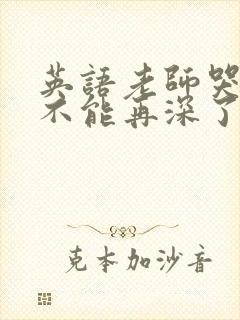 英語老師哭
不能再深了
克本加沙音